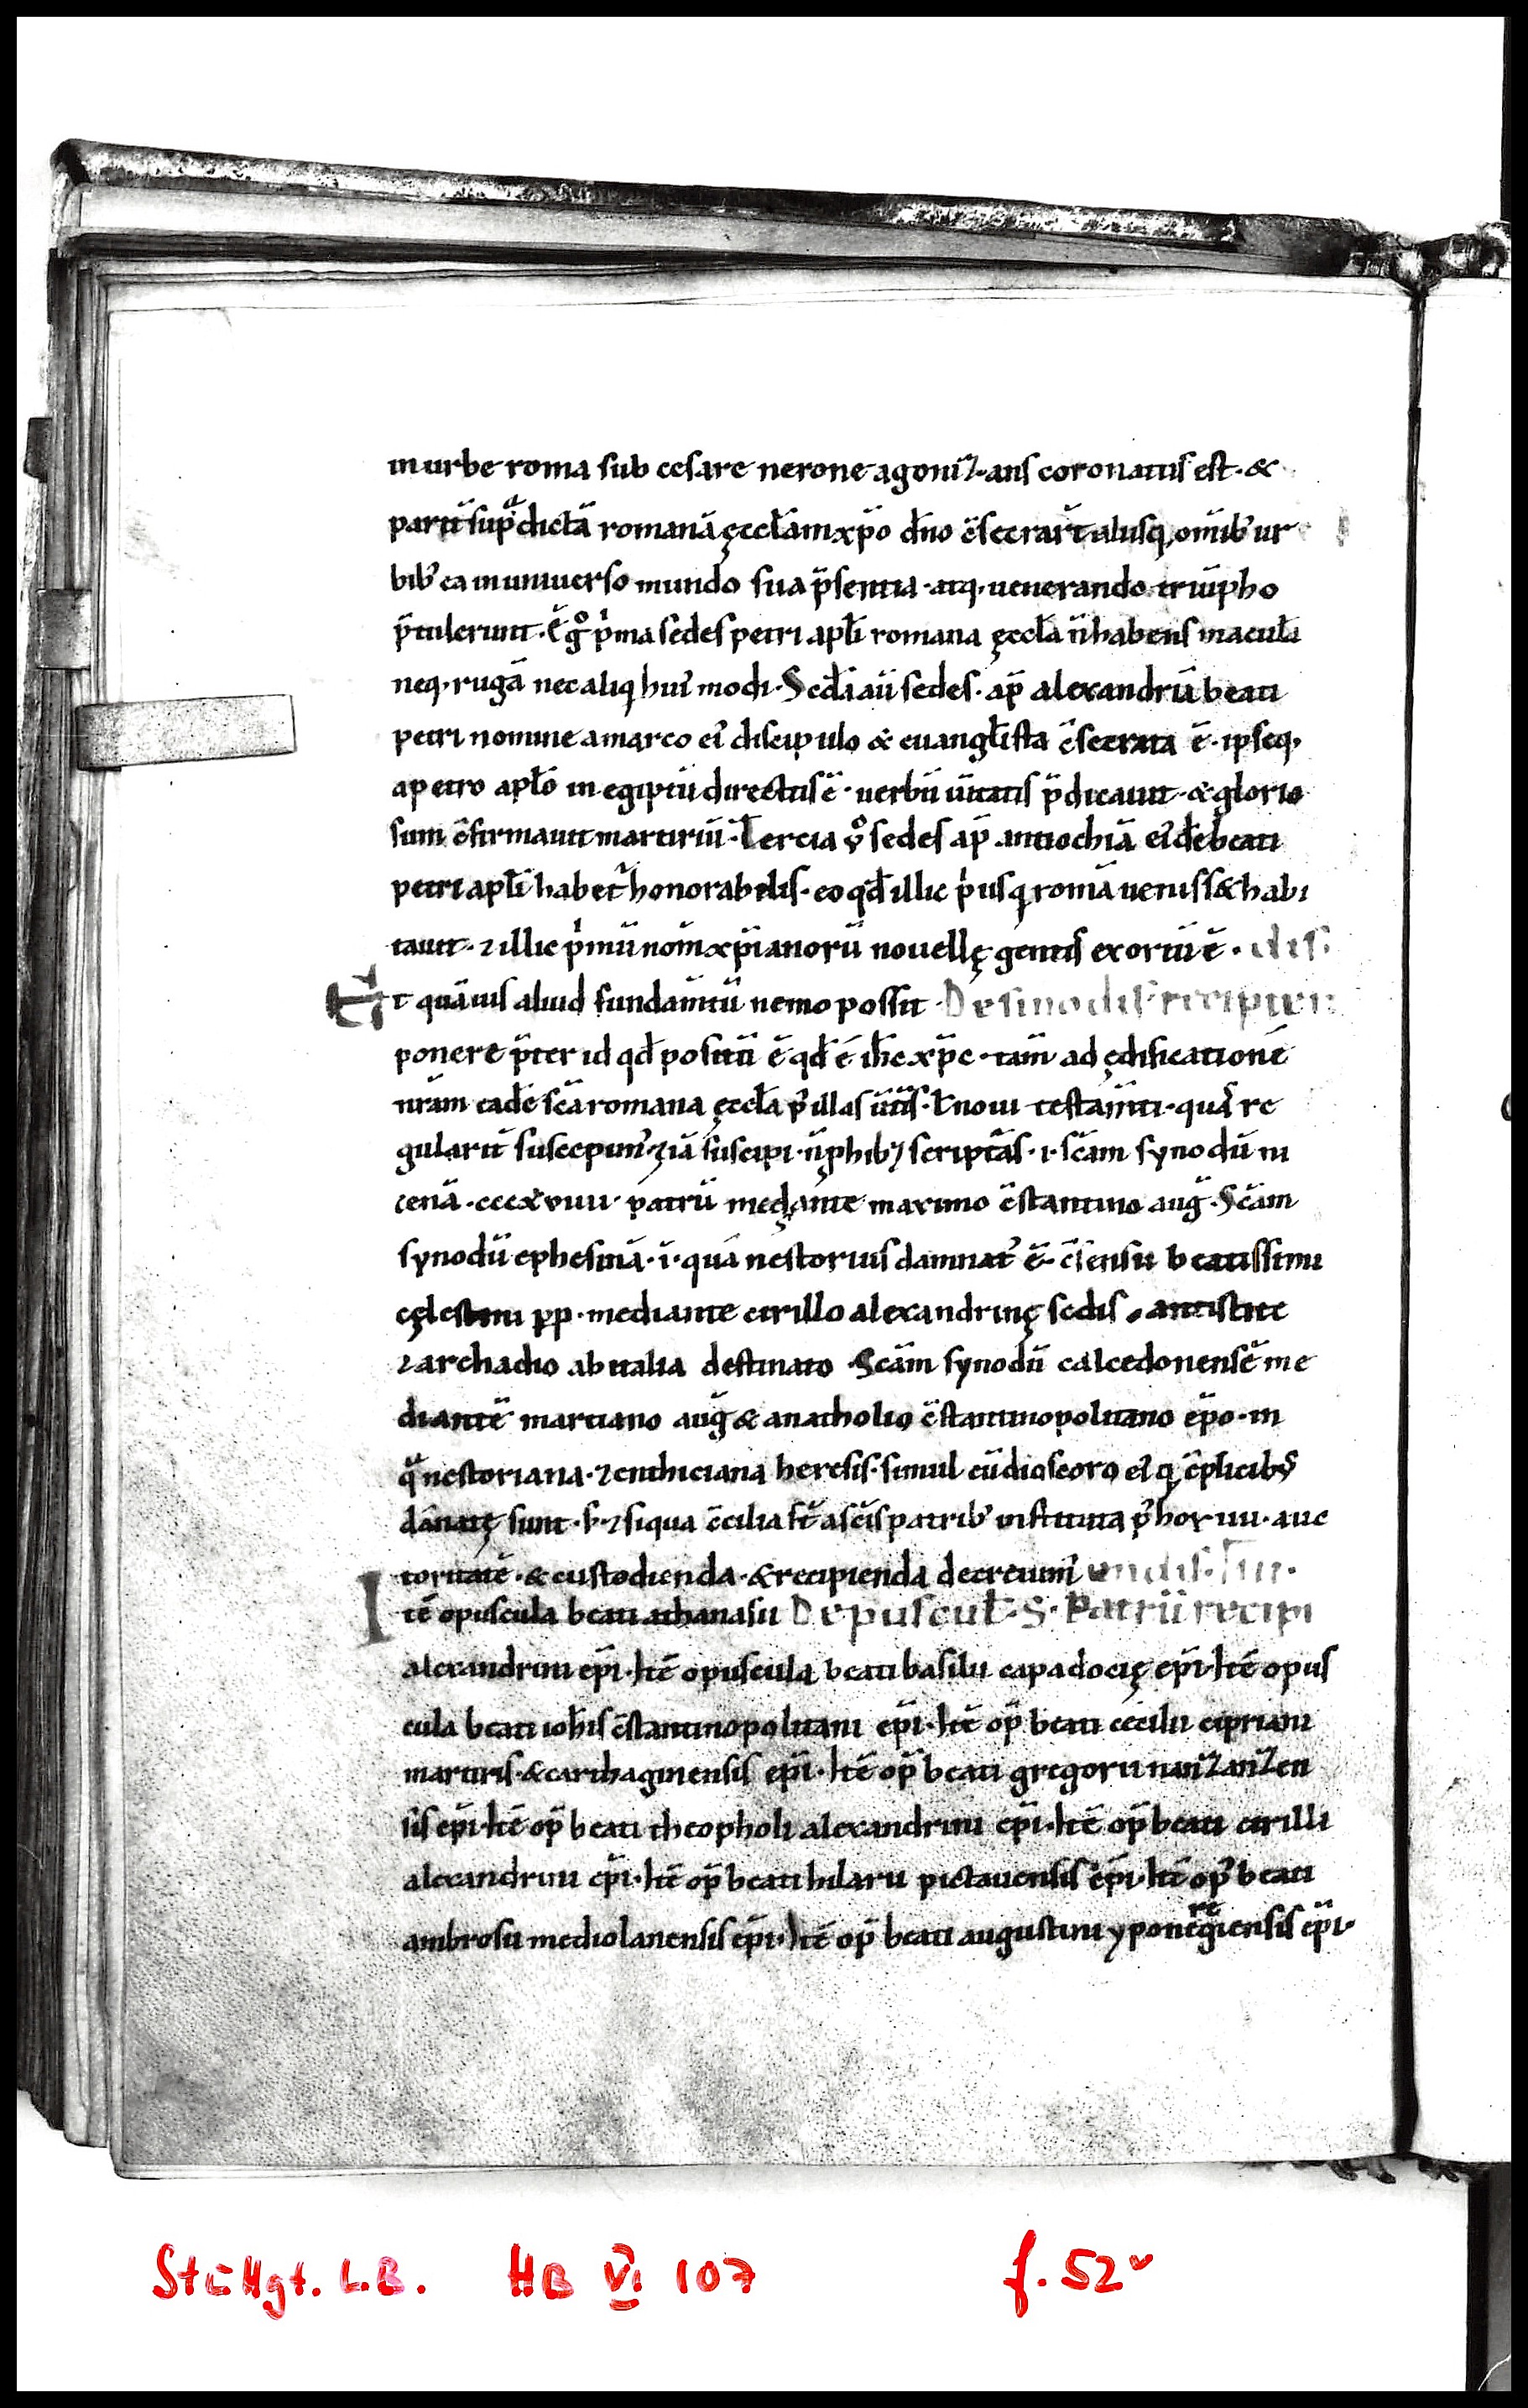 in urbe roma sub cesare nerone agoniz-ans coronatus est · &
parit̄ sup̄ᵃdictā romanā ęccl̄am xp̄o dn̄o c̄secrar̄t aliisq; om̄ib; ur
bib; ea in uniuerso mundo sua p̄sentia · atq; uenerando triūpho
p̄tulerunt · Ē gͦ pⁱma sedes petri apl̄i romana ęccl̄a n̄ habens maculā
neq; rugā nec aliq̄ hui᾽modi · Scd̄a aū sedes · ap̄ alexandriā beati
petri nomine a marco ei᾽ discipulo & euangl̄ista c̄secrata ē · ipseq;
a petro apl̄o in egiptū directus ē · uerbū ūitatis p̄dicauit · & glorio
sum c̄firmauit martiriū · Tercia v̊ sedes ap̄ antiochiā ei᾽dē beati
petri apl̄i habet᾽ honorabilis · eo qd̄ illic pⁱusq̄ romā ueniss& habi
tauit · ⁊ illic pⁱmū nom̄ xp̄ianorū nouellę gentis exortū ē · dis ·
Et quāuis aliud fundam̄tū nemo possit · De sinodis recipien
ponere p̄ter id qd̄ positū ē qd̄ ē ih̄c xp̄c · tam̄ ad ędificationē
nr̄am eadē sc̄a romana ęccl̄a p᾽ illas ūtīs · t̄ noui testam̄ti · quas re
gularit̄ suscepim᾽ · ⁊iā suscipi · n̄ phib; script̄as · i · sc̄am synodū ni
cenā · cccxviii · patrū medęante maximo c̄stantino auḡ · Sc̄am
synodū ephesinā · ī · quā nestorius damnat᾽ ē · c̄sensu beatissimi
cęlestini pp · mediante cirillo alexandrinę sedis · antistite
⁊ archadio ab italia destinato · Sc̄am synodū calcedonensē me
diantē martiano auḡ & anatholio c̄stantinopolitano ep̄o · in
qᵃ nestoriana · ⁊ euthiciana heresis · simul cū dioscoro ei᾽q; c̄plicib;
dānatę sunt · s · ⁊ siqua c̄cilia st̄ a sc̄is patrib; instituta p᾽ hoꝝ iiii · auc
toritatē · & custodienda · & recipienda decreuim᾽ endis · Fin ·
Itē opuscula beati athanasii De opuscul̄ · S · Patrū recipi
alexandrini ep̄i · Itē opuscula beati basilii capadocię ep̄i · Itē opus
cula beati ioh̄is c̄stantinopolitani ep̄i · Itē op̄ beati cecilii cipriani
martiris · & carthaginensis ep̄i · Itē op̄ beati gregorii nanzanzen
sis ep̄i · Itē op̄ beati theopholi alexandrini ep̄i · Itē op̄ beati cirilli
alexandrini ep̄i · Itē op̄ beati hilarii pictauensis ep̄i · Itē op̄ beati
ambrosii mediolanensis ep̄i · Itē op̄ beati augustini yponeʳᵉgiensis ep̄i ·
Stuttgt. L.B. HB VI 107 f. 52ᵛ